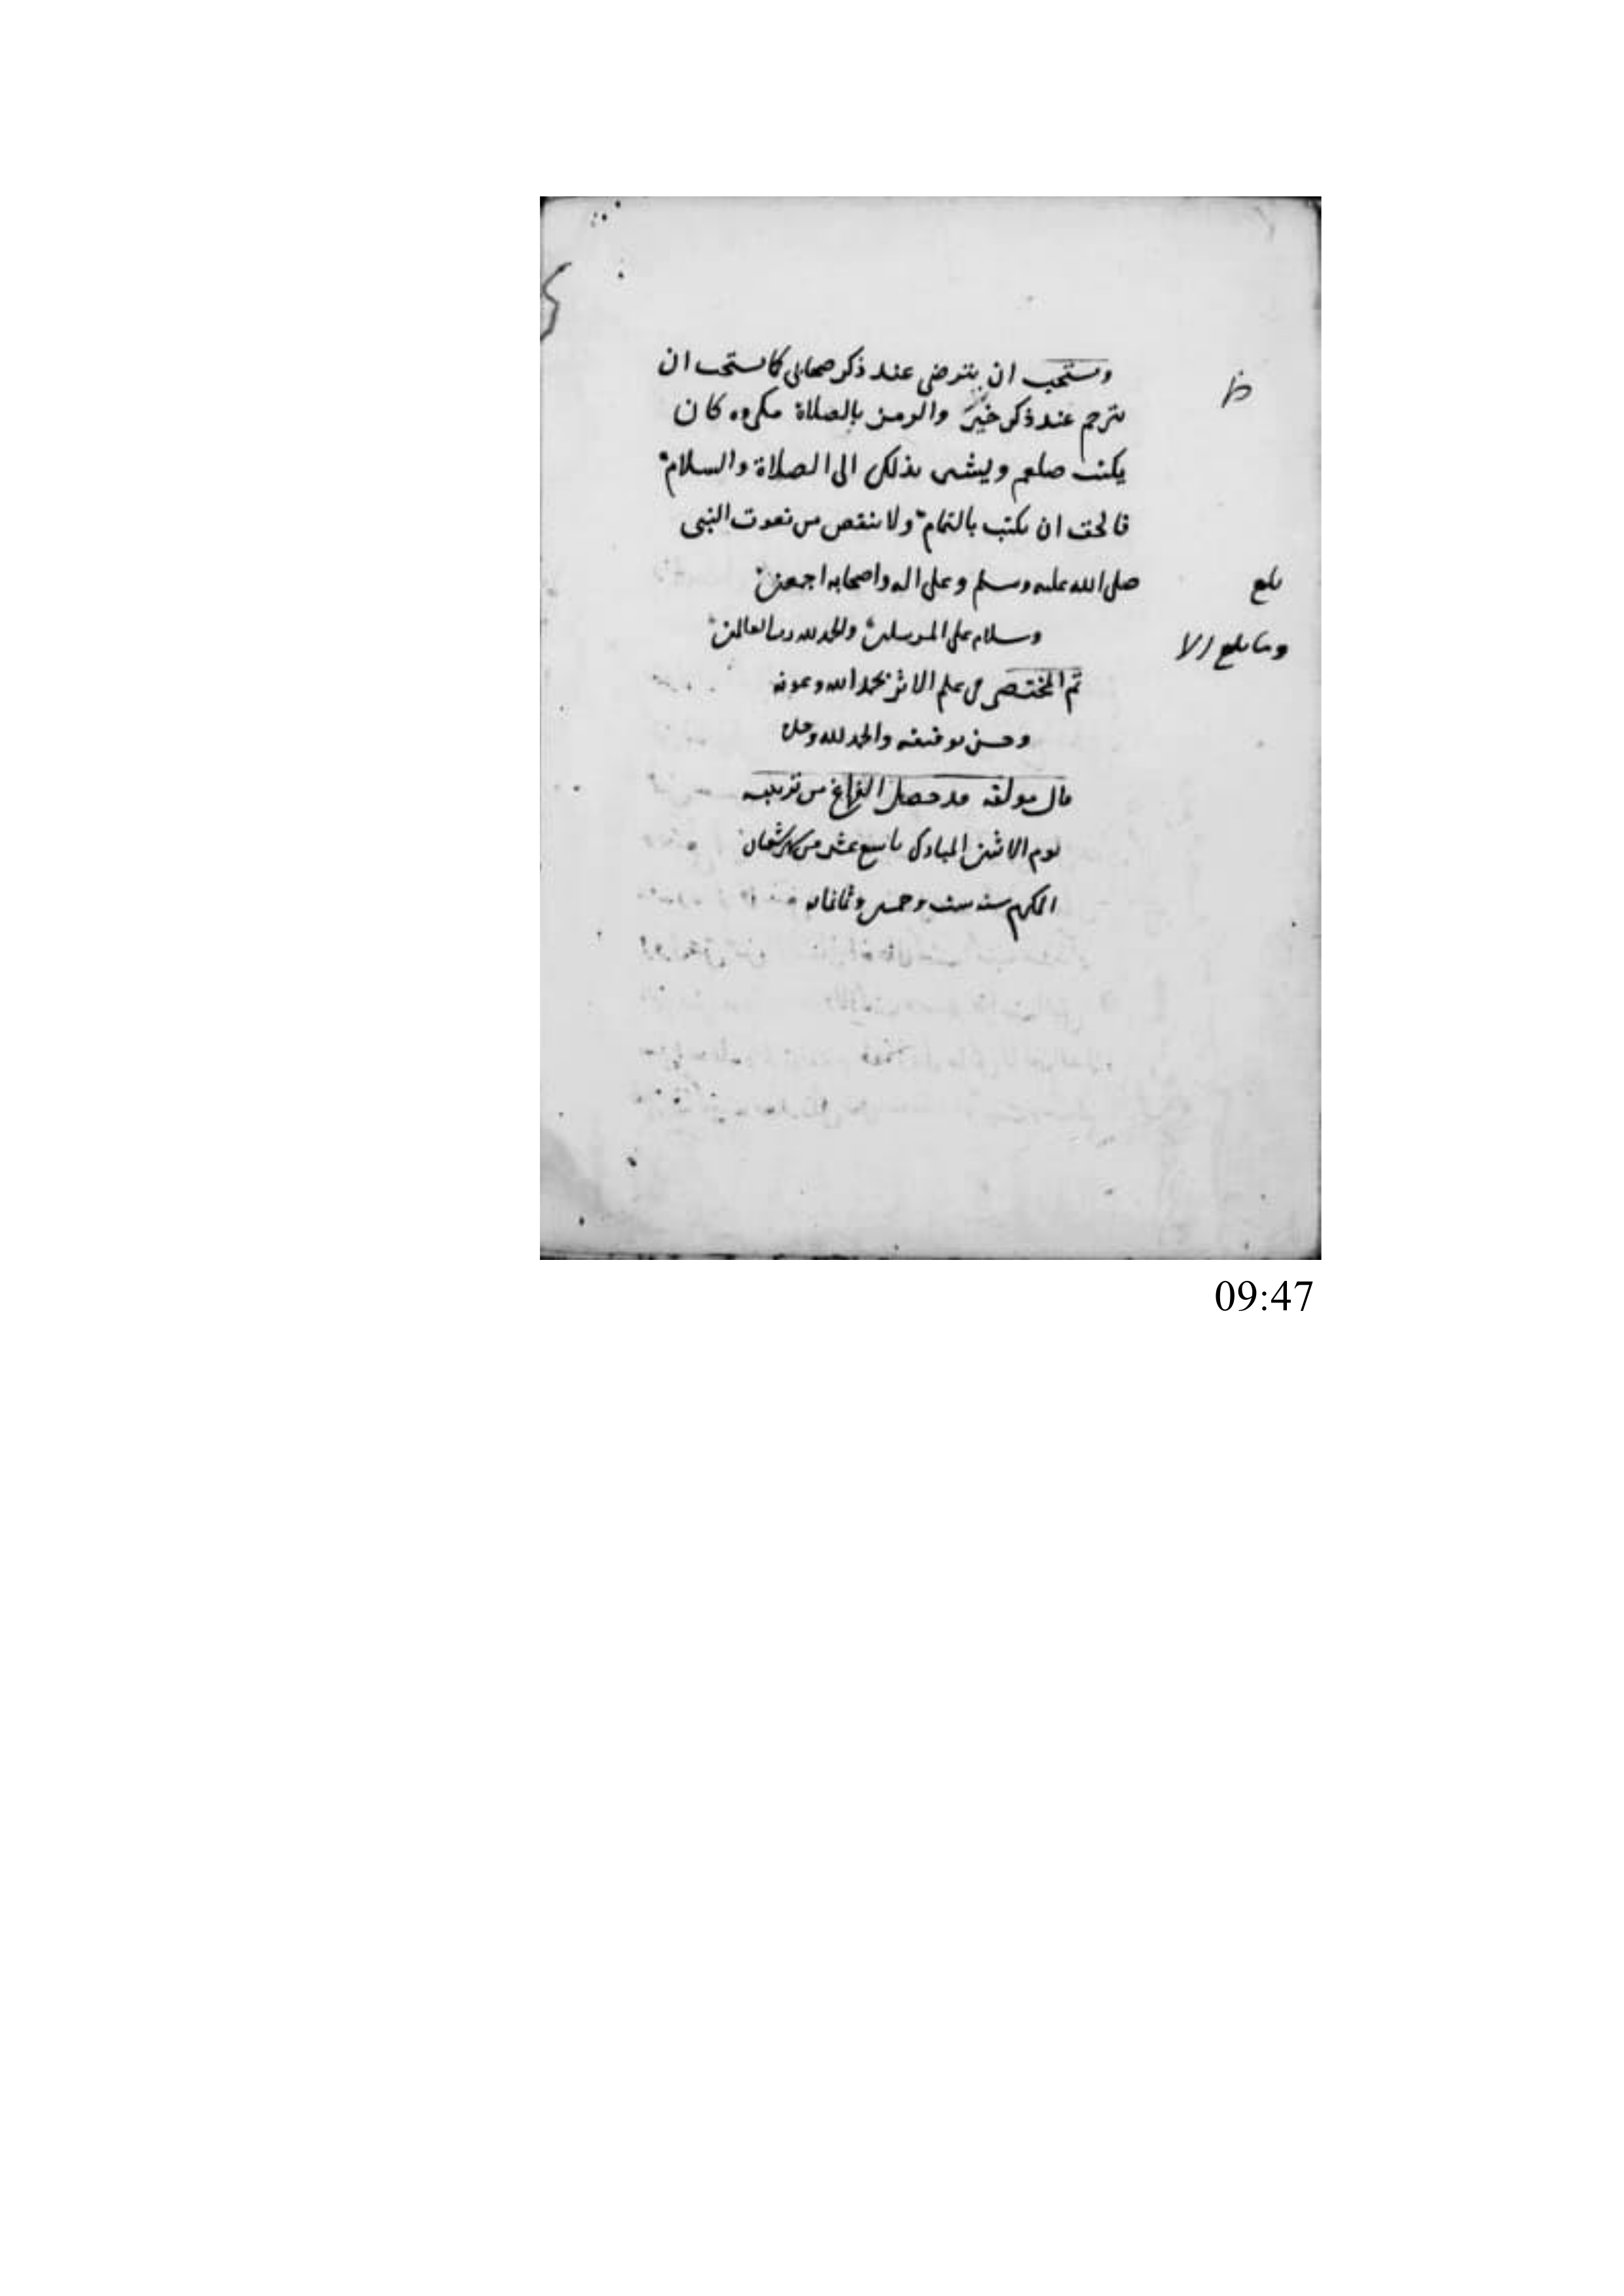 ويستحب ان يترضى عند ذكر صحابي كما يستحب ان
يترحم عند ذكر خير والرمز بالصلاة مكروه كان
يكتب صلعم ويشير بذلك الى الصلاة والسلام
فالحق ان يكتب بالتمام ولا ينقص من نعوت النبي
صلى الله عليه وسلم وعلى اله واصحابه اجمعين
بلغ
وسلام على المرسلين والحمد لله رب العالمين
تم المختصر في علم الاثر بحمد الله وعونه
وحسن توفيقه والحمد لله وحده
قال مولفه قد حصل الفراغ من ترتيبه
يوم الاثنين المبارك تاسع عشر من شهر شعبان
المكرم سنة ست وخمسين وثمانمايه
09:47